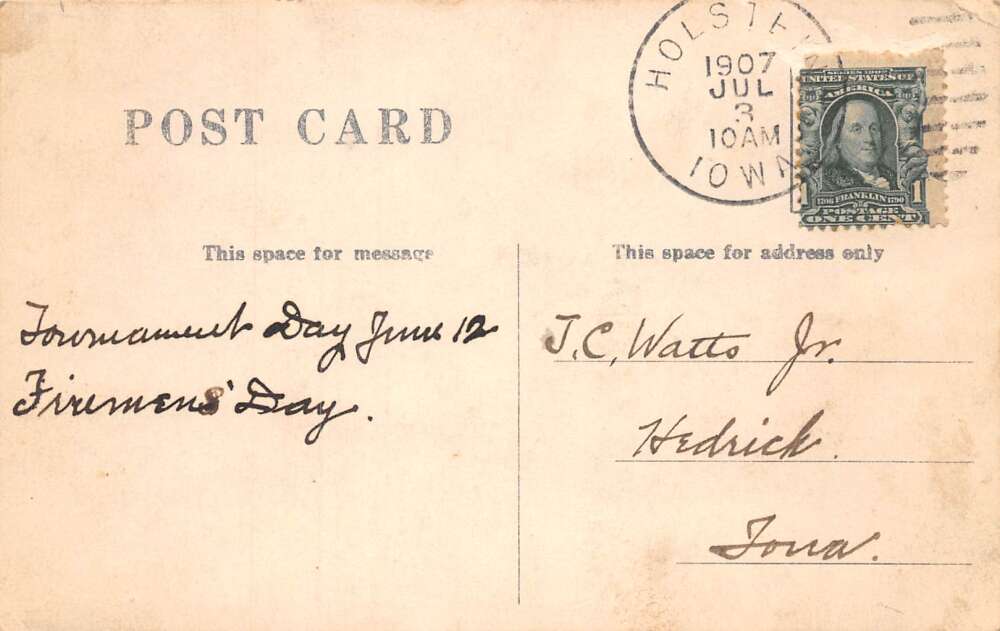 HOLSTEIN
1907
JUL
3
10AM
IOWA
SERIES 1902
UNITED STATES OF
AMERICA
1706 FRANKLIN 1790
1 1
POSTAGE
ONE CENT
POST CARD
This space for message
This space for address only
Tournament Day June 12
Firemens' Day.
J.C. Watts Jr.
Hedrick.
Iowa.